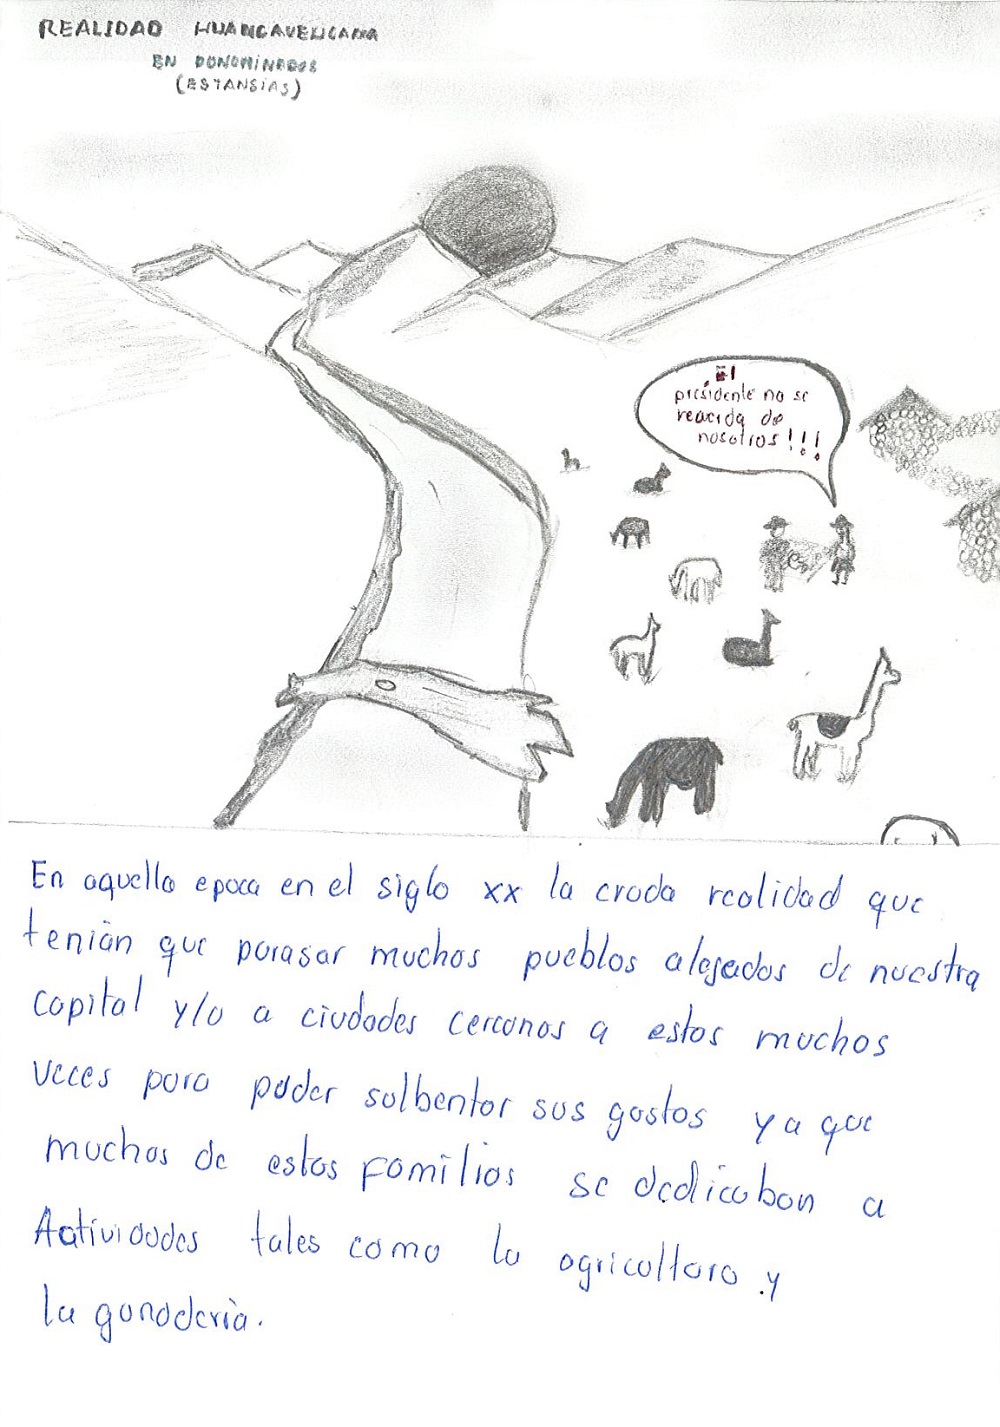 REALIDAD HUANCAVELICANA
EN DONOMINADOS
(ESTANSIAS)
El
presidente no se
reacrda de
nosotros!!!
En aquella epoca en el siglo xx la cruda realidad que
tenían que parasar muchos pueblos alejados de nuestra
capital y/o a ciudades cercanos a estos muchos
veces para poder solbentar sus gastos ya que
muchos de estas familias se dedicaban a
Actividades tales como la agricultura y
la ganaderia.